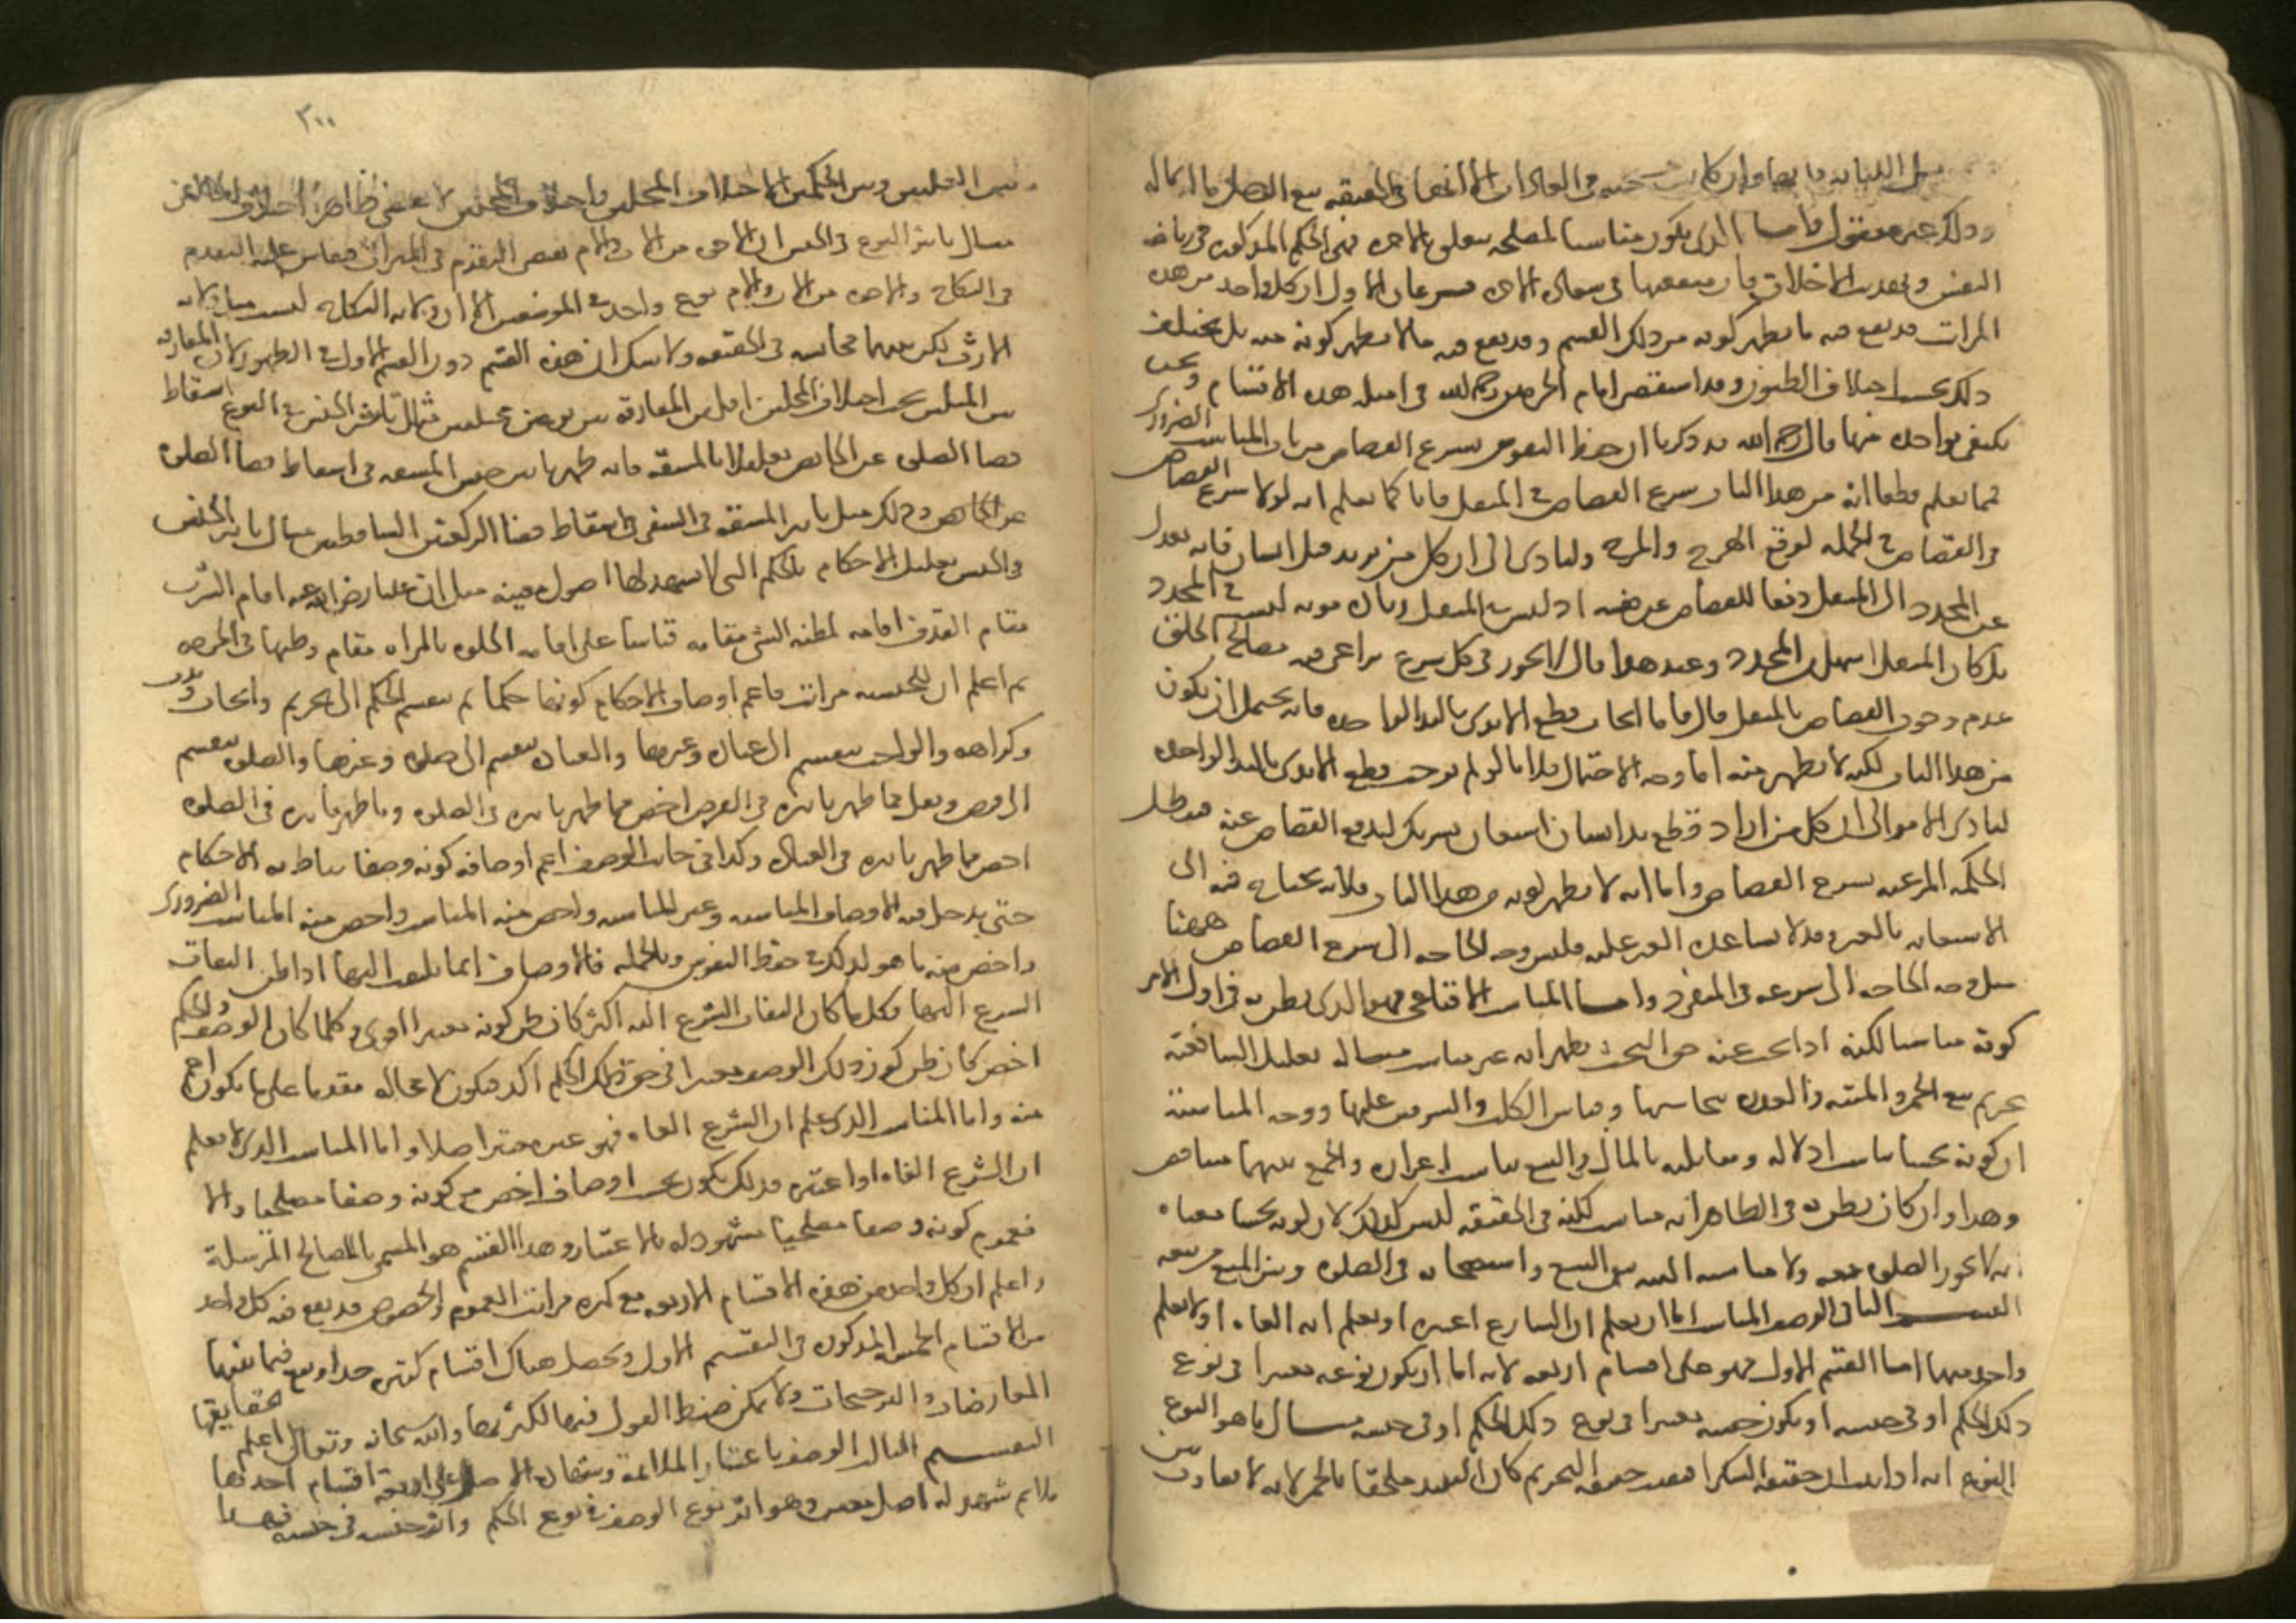 مثل الكتابة فانها وان كانت مستحسنة فى العادات الا انها فى الحقيقه بيع الرجل ماله بماله
وذلك غير معقول واما الذى يكون مناسبا لمصلحه تتعلق بالاخره فهى الحكم المذكوره فى رياضه
النفس وتهذيب الاخلاق فان منفعتها فى سعاده الاخره فرعان الاول ان كل واحد من هذه
المراتب قد يقع فيه ما يظهر كونه من ذلك القسم وقد يقع فيه ما لا يظهر كونه منه بل يختلف
ذلك بحسب اختلاف الظنون وقد استقصى امام الحرمين رحمه الله فى امثله هذه الاقسام ونحن
نكتفى بواحده منها قال رحمه الله قد ذكرنا ان حفظ النفوس بشرع القصاص من باب المناسب الضرورى
فما نعلم قطعا انه من هذا الباب شرع القصاص فى المثقل فانا كما نعلم انه لولا شرع القصاص
فى القصاص فى الجمله لوقع الهرج والمرج ولتادى الى ان كل من يريد قتل انسان فانه يعدل
عن المحدد الى المثقل دفعا للقصاص عن نفسه اذ ليس فى المثقل زياده مونه ليست فى المحدد
بل كان المثقل اسهل من المحدد وعند هذا قال لا يجوز فى كل شرع يراعى فيه مصالح الخلق
عدم وجوب القصاص بالمثقل قال فاما ايجاب قطع الايدى باليد الواحده فانه يحتمل ان يكون
من هذا الباب لكنه لا يظهر منه اما وجه الاحتمال فلانا لو لم نوجب قطع الايدى باليد الواحده
لتادى الامر الى ان كل من اراد قطع يد انسان استعان بشريك ليدفع القصاص عنه فتبطل
الحكمه المرعيه بشرع القصاص واما انه لا يظهر كونه من هذا الباب فلانه يحتاج فيه الى
الاستعانه بالغير وقد لا يساعده الغير عليه فليس وجه الحاجه الى شرع القصاص ههنا
مثل وجه الحاجه الى شرعه فى المنفرد واما المناسب الاقناعى فهو الذى يظن به فى اول الامر
كونه مناسبا لكنه اذا بحث عنه حق البحث يظهر انه غير مناسب مثاله تعليل الشافعيه
تحريم بيع الخمر والميته والعذره بنجاستها وقياس الكلب والسرقين عليها ووجه المناسبة
ان كونه نجسا يناسب اذلاله ومقابلته بالمال فى البيع يناسب اعزازه والجمع بينهما متناقض
وهذا وان كان يظن به فى الظاهر انه مناسب لكنه فى الحقيقه ليس كذلك لان كونه نجسا معناه
انه لا يجوز الصلوه معه ولا مناسبه البته بين المنع من استصحابه فى الصلوه وبين المنع من بيعه
التقسيم الثانى الوصف المناسب اما ان يعلم ان الشارع اعتبره او يعلم انه الغاه او لا يعلم
واحد منهما اما القسم الاول فهو على اقسام اربعه لانه اما ان يكون نوعه معتبرا فى نوع
ذلك الحكم او فى جنسه او يكون جنسه معتبرا فى نوع ذلك الحكم او فى جنسه مثال ما هو النوع
النوع انه اذا ثبت ان حقيقه السكر اقتضت حقيقه التحريم كان النبيذ ملحقا بالخمر لانه لا تفاوت بين
٢٠٠
بين العلتين وبين الحكمين الا اختلاف المحلين واختلاف المحلين لا يقتضى ظاهرا اختلاف الحالين
مثال تاثير النوع فى الجنس ان الاخوه من الاب والام يقتضى التقدم فى الميراث فيقاس عليه التقدم
فى النكاح والاخوه من الاب والام نوع واحد فى الموضعين الا ان ولايه النكاح ليست مثل ولايه
الارث لكن بينهما مجانسه فى الحقيقه ولا شك ان هذا القسم دون القسم الاول فى الظهور لان المفارقه
بين المثلين بحسب اختلاف المحلين اقل من المفارقه بين نوعين مختلفين مثال تاثير الجنس فى النوع اسقاط
قضا الصلوه عن الحائض تعليلا بالمشقه فانه ظهر تاثير جنس المشقه فى اسقاط قضا الصلوه
عن الحائض وذلك مثل تاثير المشقه فى السفر فى اسقاط قضا الركعتين الساقطتين مثال تاثير الجنس
فى الجنس تعليل الاحكام بالحكم التى لا تشهد لها اصول معينه مثل ان عليا رضى الله عنه اقام الشرب
مقام القذف اقامه لمظنه الشى مقامه قياسا على اقامه الخلوه بالمراه مقام وطيها فى الحرمه
ثم اعلم ان للجنسيه مراتب فاعم اوصاف الاحكام كونها حكما ثم ينقسم الحكم الى تحريم وايجاب وندب
وكراهه والواجب ينقسم الى عباده وغيرها والعباده تنقسم الى صلوه وغيرها والصلوه تنقسم
الى فرض ونفل فما ظهر تاثيره فى الفرض اخص مما ظهر تاثيره فى الصلوه وما ظهر تاثيره فى الصلوه
اخص مما ظهر تاثيره فى العباده وكذا فى جانب الوصف اعم اوصافه كونه وصفا يناط به الاحكام
حتى يدخل فيه الاوصاف المناسبه وغير المناسبه واخص منه المناسب واخص منه المناسب الضرورى
واخص منه ما هو كذلك فى حفظ النفوس وبالجمله فالاوصاف انما يلتفت اليها اذا ظن التفات
الشرع اليها وكل ما كان التفات الشرع اليه اكثر كان ظن كونه معتبرا اقوى وكلما كان الوصف والحكم
اخص كان ظن كون ذلك الوصف معتبرا فى حق ذلك الحكم اكد فيكون لا محاله مقدما على ما يكون اعم
منه واما المناسب الذى علم ان الشرع الغاه فهو غير معتبر اصلا واما المناسب الذى لا يعلم
ان الشرع الغاه او اعتبره فذلك يكون بحسب اوصاف اخص من كونه وصفا مصلحيا والا
فعموم كونه وصفا مصلحيا مشهود له بالاعتبار وهذا القسم هو المسمى بالمصالح المرسلة
واعلم ان كل واحد من هذه الاقسام الاربعه مع كثره مراتب العموم والخصوص قد يقع فيه كل واحد
من الاقسام الخمسه المذكوره فى التقسيم الاول ويحصل هناك اقسام كثيره جدا ويقع فيما بينها
المعارضات والترجيحات ولا يمكن ضبط القول فيها لكثرتها والله سبحانه وتعالى اعلم بحقايقها
التقسيم الثالث الوصف باعتبار الملائمة وشهادة الاصل على اربعة اقسام احدها
ملائم شهد له اصل معين وهو اثر نوع الوصف فى نوع الحكم واثر جنسه فى جنسه فهذا